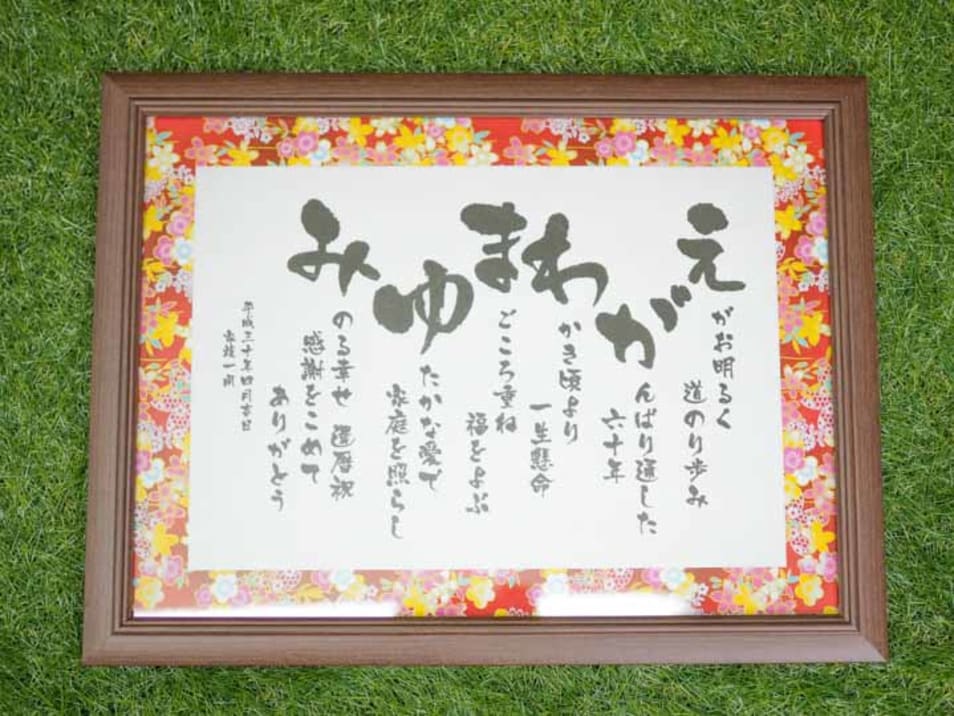 えがお明るく
道のり歩み
がんばり通した
六十年
わかき頃より
一生懸命
まごころ重ね
福をよぶ
ゆたかな愛で
家庭を照らし
みのる幸せ 還暦祝
感謝をこめて
ありがとう
平成三十年四月吉日
家族一同